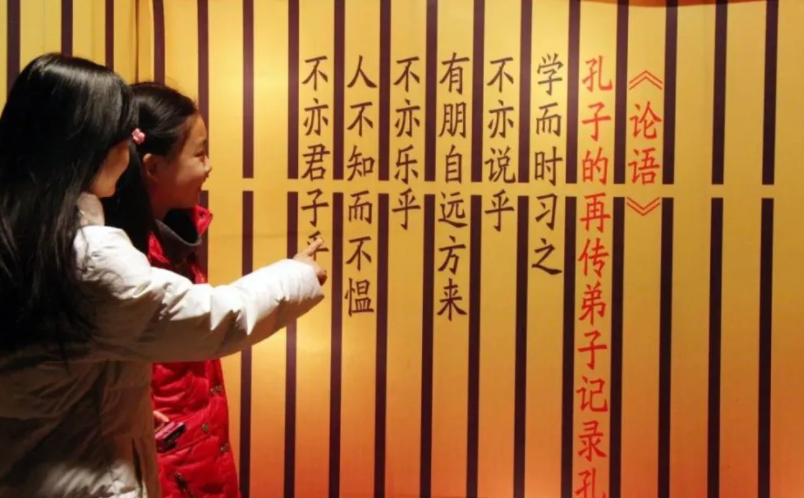 《论语》
孔子的再传弟子记录孔
学而时习之
不亦说乎
有朋自远方来
不亦乐乎
人不知而不愠
不亦君子乎